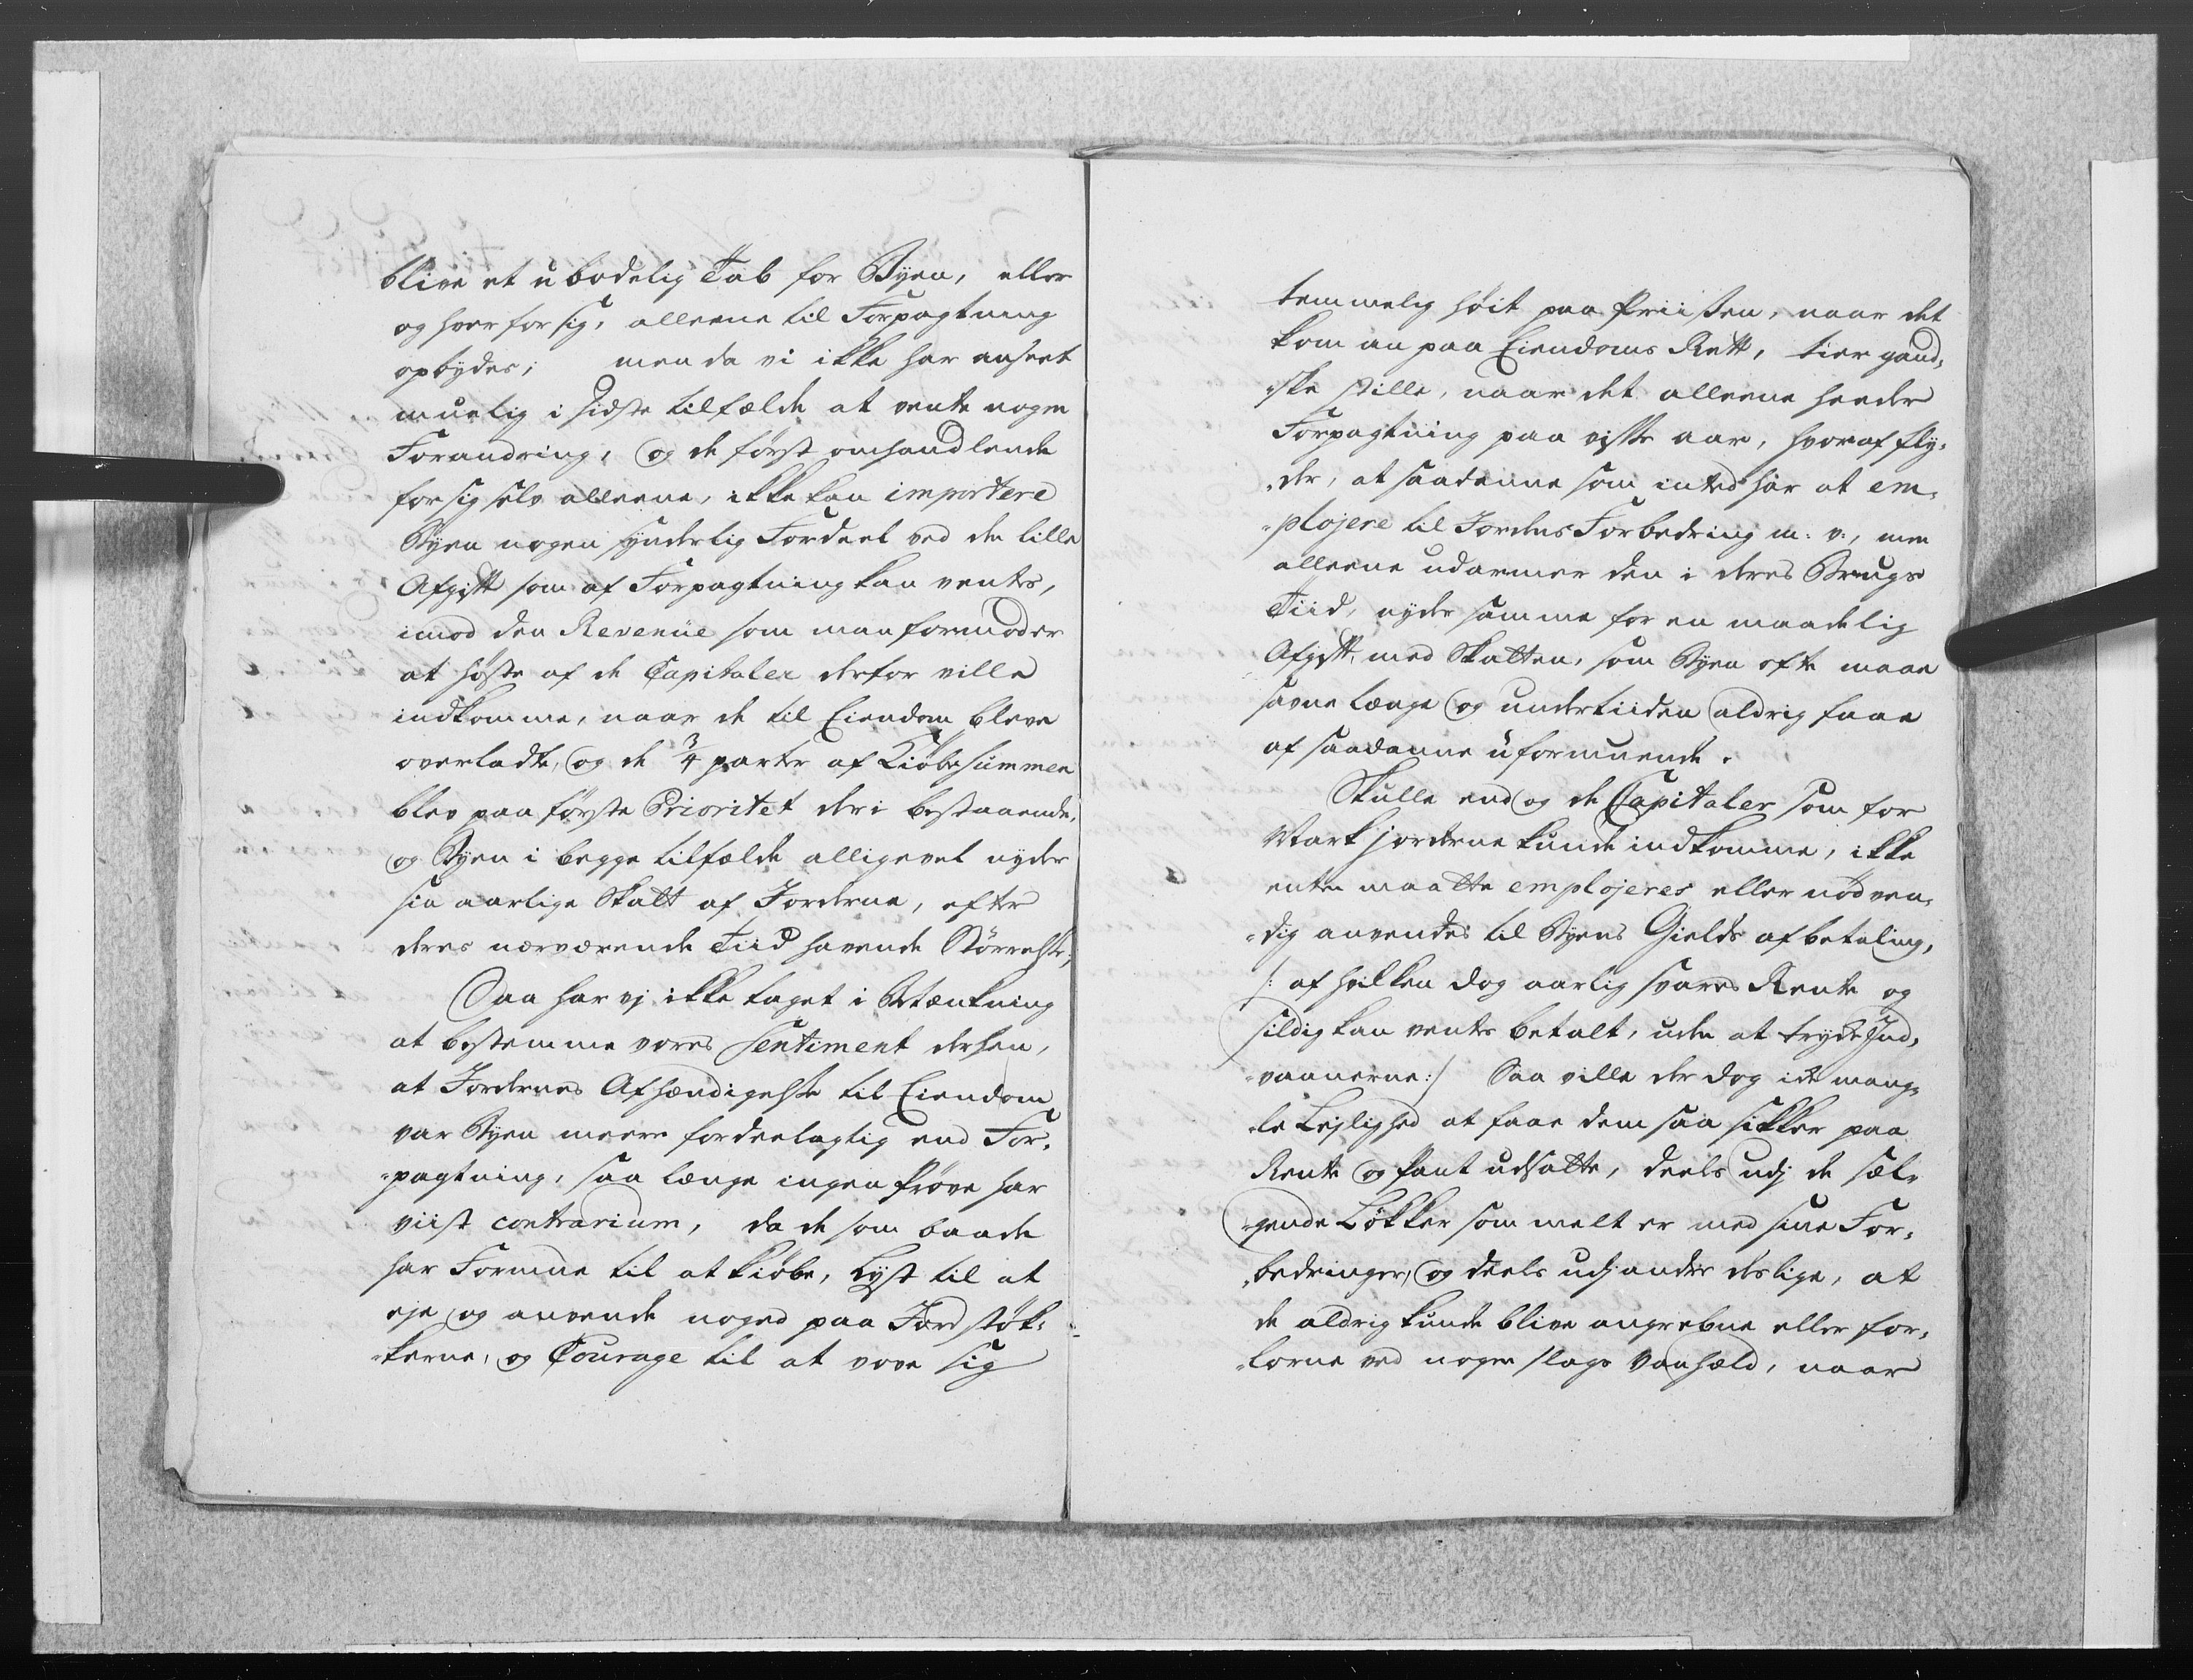 blive et ubodelig Tab for Byen, eller
og hver for sig, alleene til Forpagtning
opbydes; men da vi ikke har anseet
muelig i sidste tilfælde at vente nogen
Forandring, og de først omhandlende
for sig selv alleene, ikke kan importere
Byen nogen synderlig Fordeel ved den lille
Afgift som af Forpagtning kan ventes,
imod den Revenüe som man formoder
at høste af de Capitaler derfor ville
indkomme, naar de til Eiendom bleve
overladte, og de 3/4 parter af Kiøbesummen
blev paa første Prioritet deri bestaaende,
og Byen i begge tilfælde alligevel nyder
sin aarlige Skatt af Jorderne, efter
deres nærværende Tiid havende Størrelse;
Saa har vj ikke taget i Betænkning
at bestemme vores Sentiment derhen,
at Jordernes Afhændigelse til Eiendom
var Byen meere fordeelagtig end For-
-pagtning, saa længe ingen Prøve har
viist contrarium, da de som baade
har Formue til at kiøbe, Lyst til at
eje og anvende noged paa Jord støk-
-kerne, og Courage til at vove sig
temmelig høit paa Priisen, naar det
kom an paa Eiendoms Rett, tier gand-
-ske stille, naar det alleene heeder
Forpagtning paa visse aar, hvoraf fly-
-der, at saadanne som inted har at em-
-plojere til Jordens Forbedring m: v:, men
alleene udarmer den i deres Brugs
Tiid, nyder samme for en maadelig
Afgift, med Skatten, som Byen ofte maae
savne længe og undertiiden aldrig faae
af saadanne uformuende.
Skulle end og de Capitaler som for
Markjorderne kunde indkomme, ikke
enten maatte emplojeres eller nødven-
-dig anvendes til Byens Gields afbetaling,
/: af hvilken dog aarlig svares Rente og
sildig kan ventes betalt, uden at trykke Ind-
-vaanerne :/ Saa ville der dog ikke mang-
-le Lejlighed at faae dem saa sikker paa
Rente og Pant udsatte, deels udj de sæl-
-gende Løkker som melt er med sine For-
-bedringer, og deels udj andre deslige, at
de aldrig kunde blive angrebne eller for-
-lorne ved nogen slags Vanheld, naar